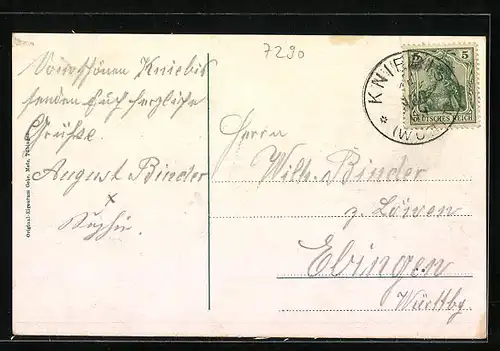 7290
Vom schönen Kniebis
senden Euch herzliche
Grüße.
August Binder
x
Sophie.
KNIEBIS
* (WÜ
5
DEUTSCHES REICH
Herrn
Wilh. Binder
z. Löwen
Ebingen
Württbg.
Original-Eigentum Gebr. Metz, Tübingen